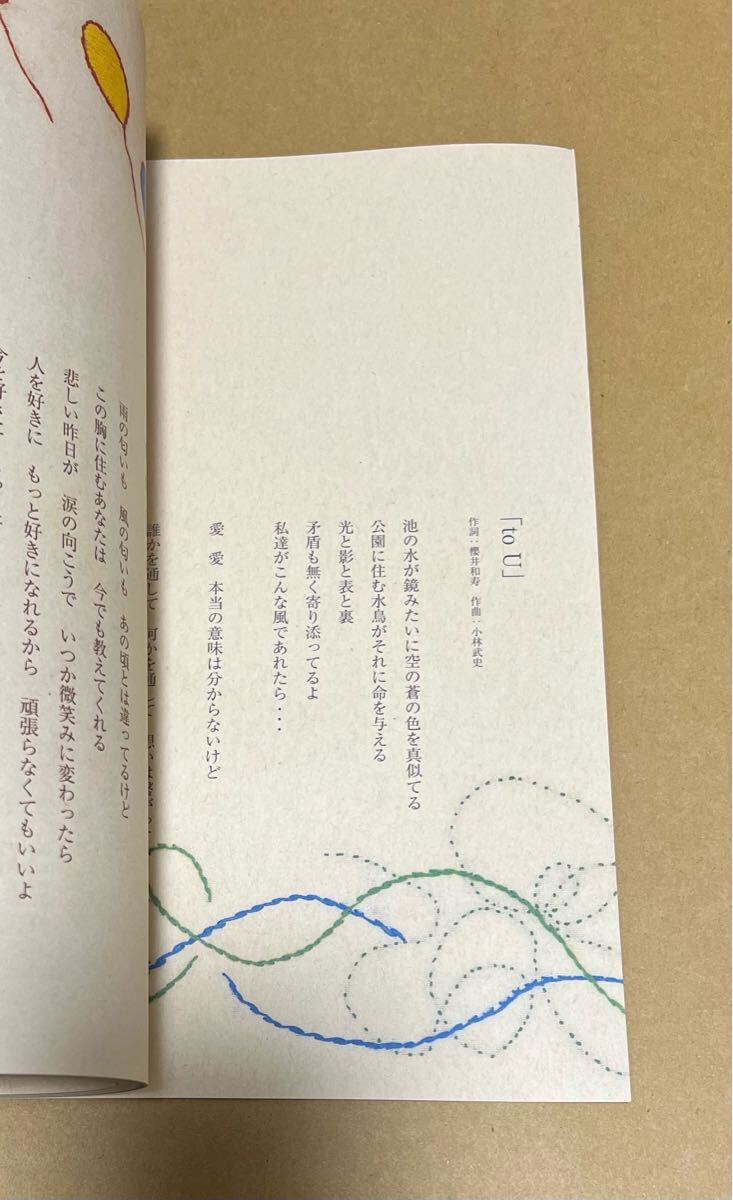 「to U」
作詞：櫻井和寿　作曲：小林武史
池の水が鏡みたいに空の蒼の色を真似てる
公園に住む水鳥がそれに命を与える
光と影と表と裏
矛盾も無く寄り添ってるよ
私達がこんな風であれたら・・・
愛　愛　本当の意味は分からないけど
誰かを通して　何かを通して
雨の匂いも　風の匂いも　あの頃とは違ってるけど
この胸に住むあなたは　今でも教えてくれる
悲しい昨日が　涙の向こうで　いつか微笑みに変わったら
人を好きに　もっと好きになれるから　頑張らなくてもいいよ